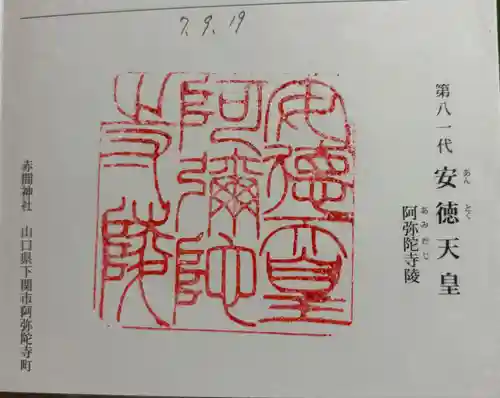 7.9.19
第八一代 安徳天皇
あん とく
阿弥陀寺陵
あみだじ
安德皇
阿彌陀
寺陵
赤間神社 山口県下関市阿弥陀寺町